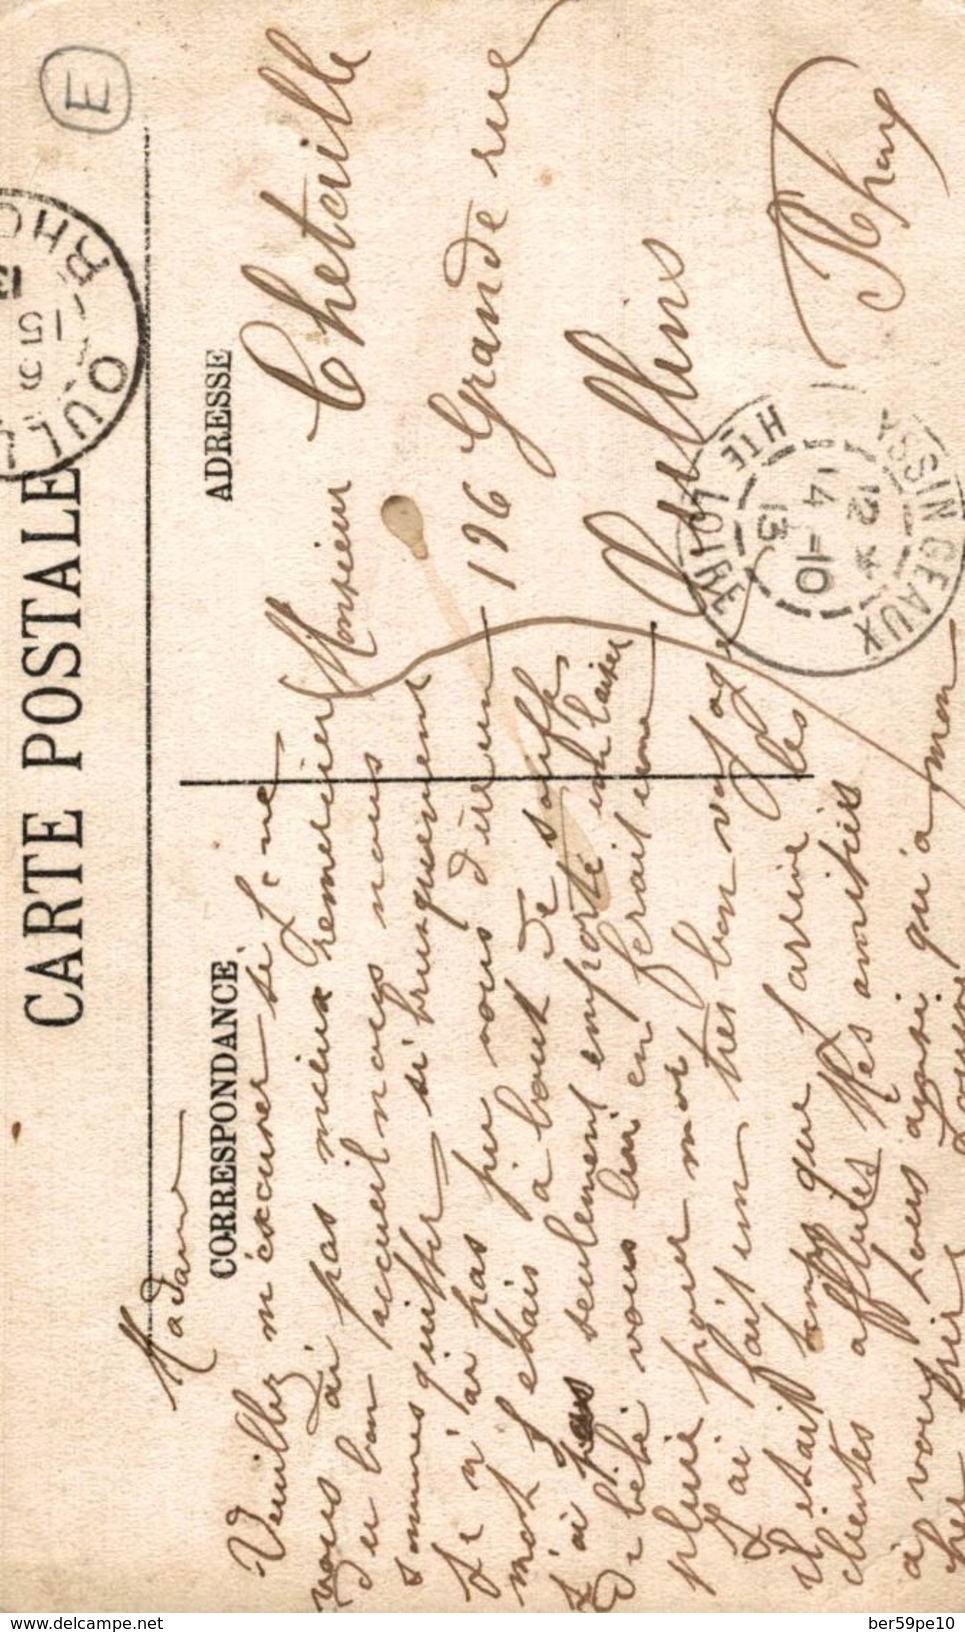 CARTE POSTALE
E
CORRESPONDANCE
ADRESSE
Madame
Veuillez m'excuser si je ne
vous ai pas mieux remercier
du bon accueil mais nous nous
sommes quitter si brusquement
Je n'ai pas pu vous dire un
mot j'étais à bout de souffle
J'ai pas seulement emporté
Bébé vous lui en ferait une
pour moi
J'ai fait un très bon voyage
il était temps que j'arrive les
clientes Mes amitiés
à vous tous ainsi qu'a mon
Monsieur Chetaille
196 Grande rue
Oullins
Rhône
YSSINGEAUX
HTE LOIRE
12
14-10
13
OUL
RHO
15
13
delcampe.net
ber59pe10